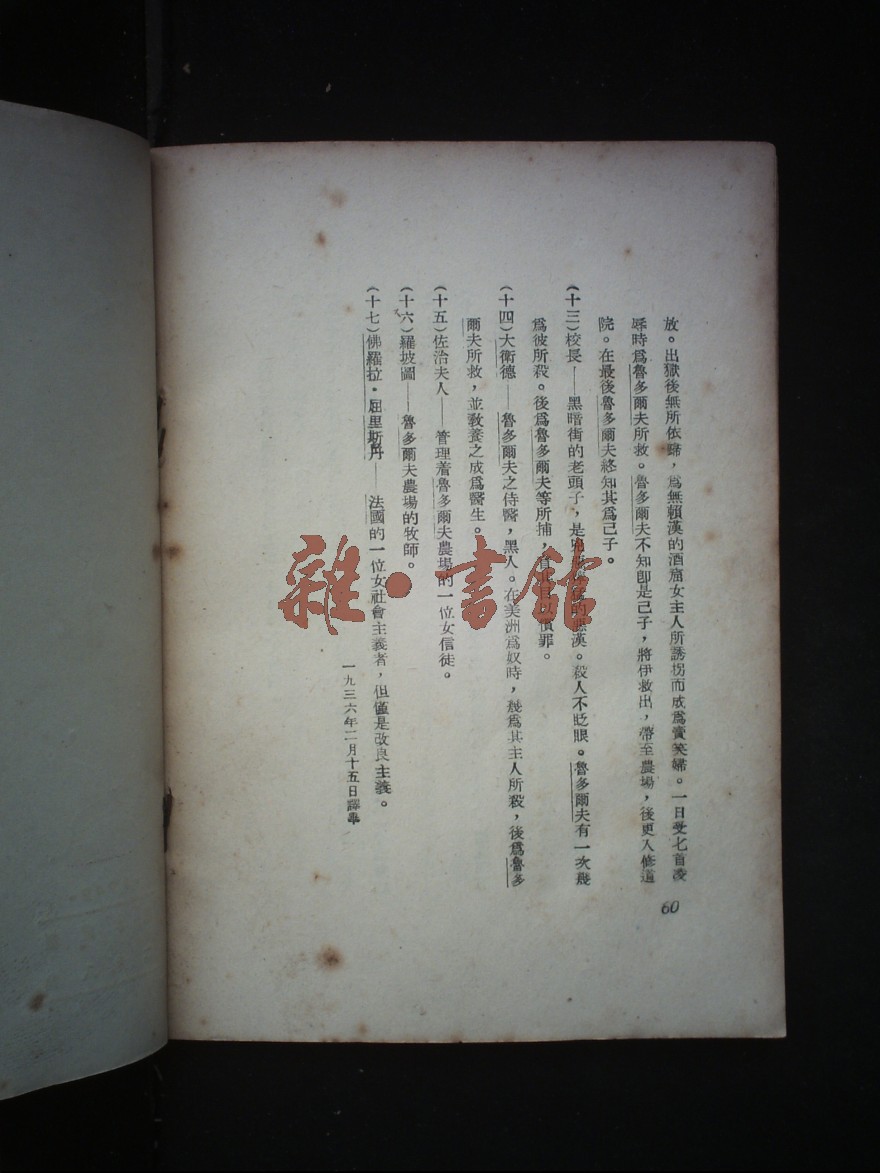 放。出獄後無所依歸，爲無賴漢的酒窟女主人所誘拐而成爲賣笑婦。一日受匕首凌
辱時爲魯多爾夫所救。魯多爾夫不知卽是己子，將伊救出，帶至農場，後更入修道
院。在最後魯多爾夫終知其爲己子。
（十三）校長——黑暗街的老頭子，是兇 的惡漢。殺人不眨眼。魯多爾夫有一次幾
爲彼所殺。後爲魯多爾夫等所捕， 其目以償罪。
（十四）大衛德——魯多爾夫之侍醫，黑人。在美洲爲奴時，幾爲其主人所殺，後爲魯多
爾夫所救，並敎養之成爲醫生。
（十五）佐治夫人——管理着魯多爾夫農場的一位女信徒。
（十六）羅坡圖——魯多爾夫農場的牧師。
（十七）佛羅拉·屈里斯丹——法國的一位女社會主義者，但僅是改良主義。
一九三六年二月十五日譯畢
60
雜·書館